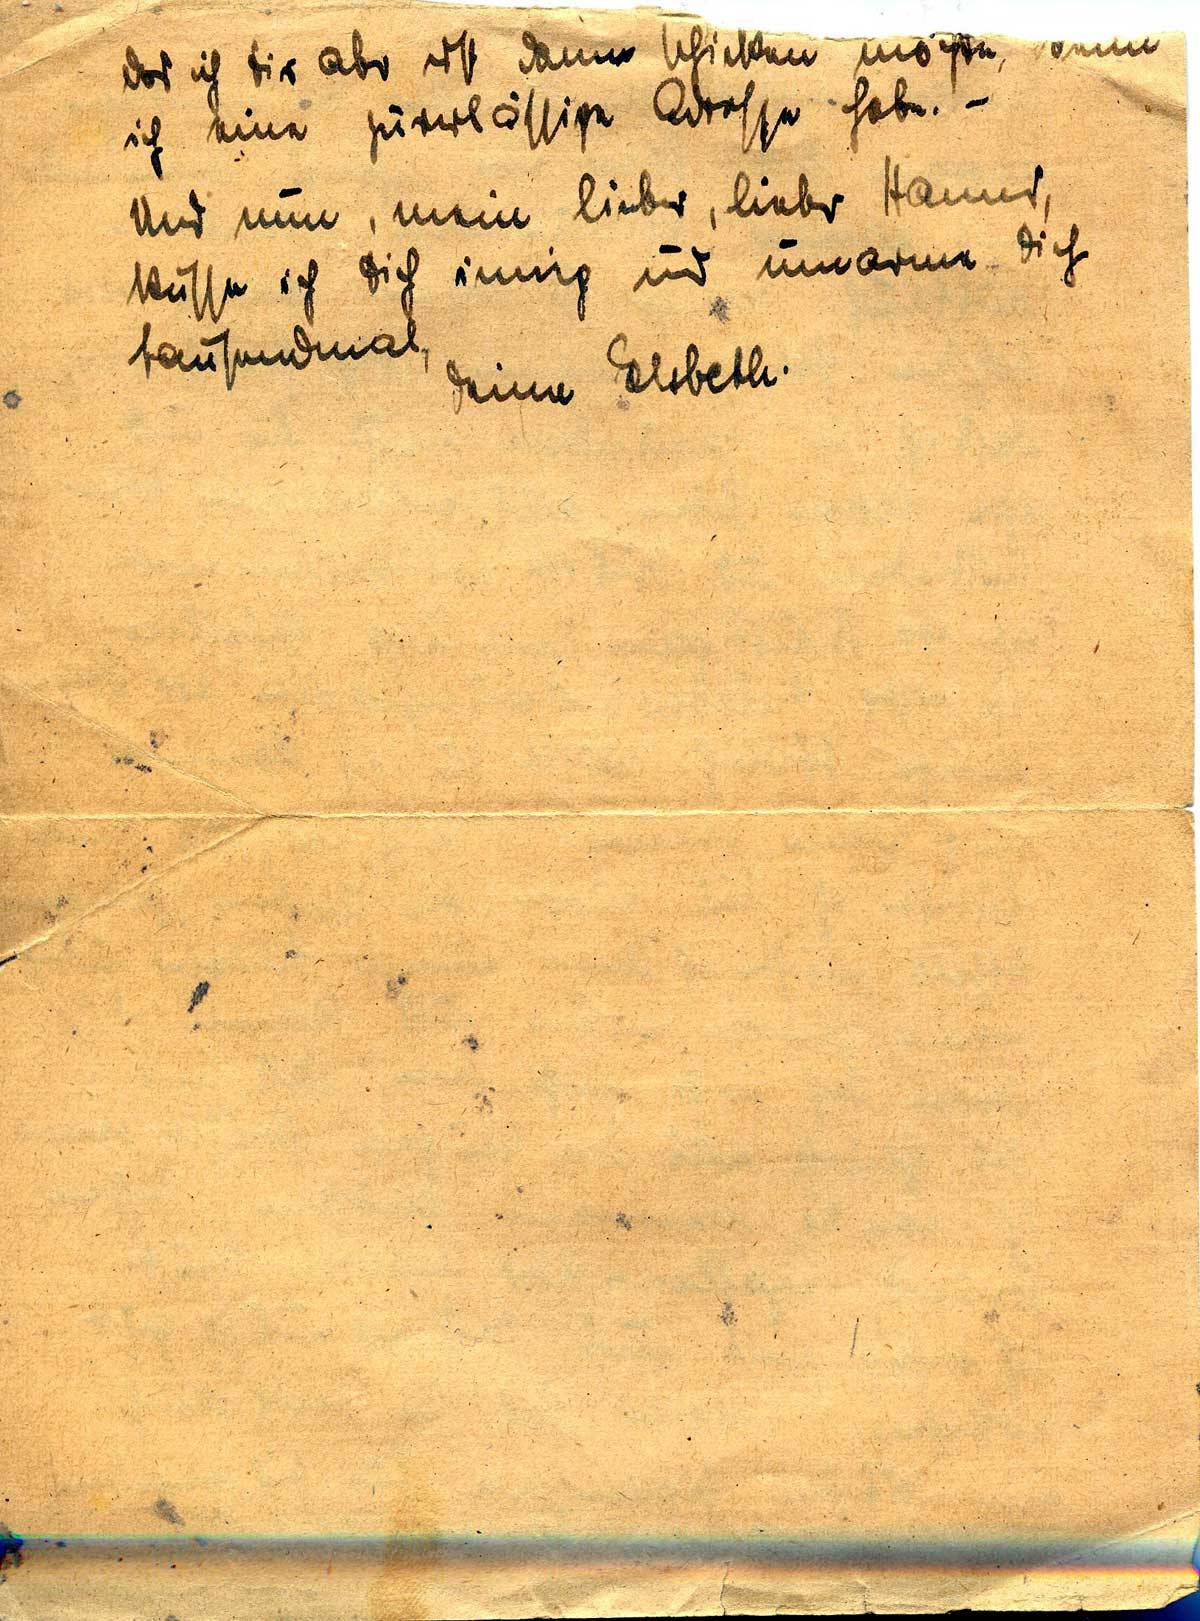 das ich dir aber erst dann schicken möchte, wenn
ich eine zuverlässige Adresse habe. –
Und nun, mein lieber, lieber Hannes,
küsse ich Dich innig und umarme Dich
tausendmal,
deine Elsbeth.